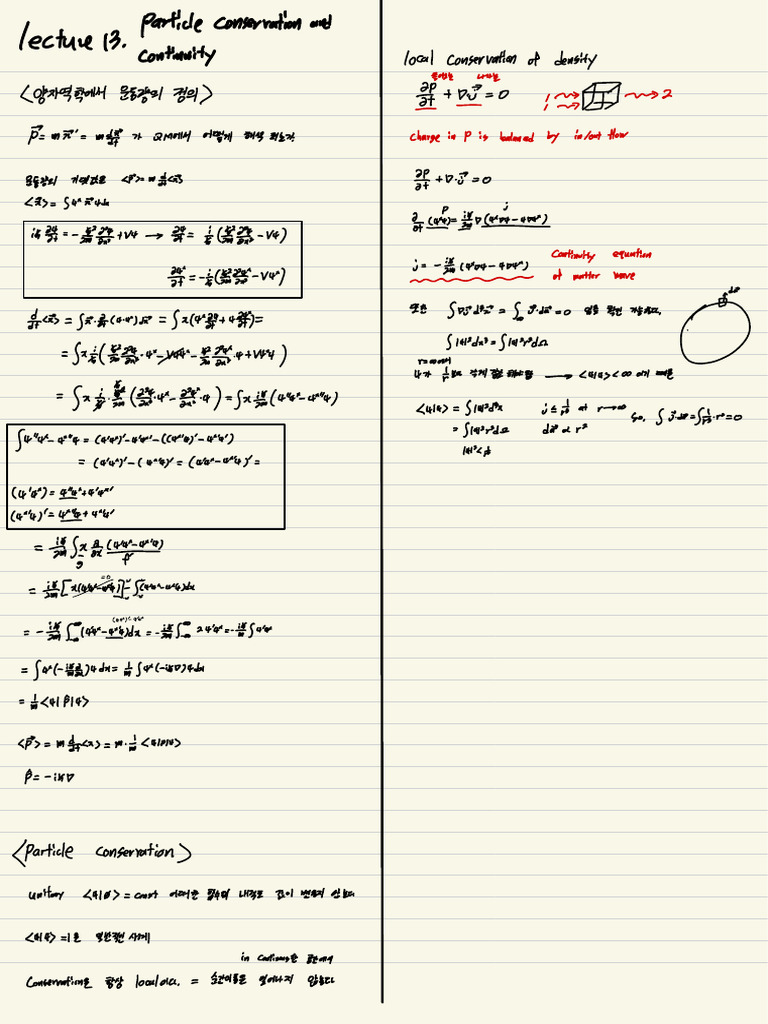 lecture 13. Particle conservation and
continuity
<양자역학에서 운동량의 정의>
p⃗ = m x⃗' = m dx⃗/dt 가 QM에서 어떻게 해석 되는가
운동량의 기댓값은 <p⃗> = m d/dt <x⃗>
<x⃗> = ∫ψ* x⃗ ψ dx
iℏ ∂ψ/∂t = -ℏ²/2m ∂²ψ/∂x² + Vψ → ∂ψ/∂t = i/ℏ (ℏ²/2m ∂²ψ/∂x² - Vψ)
∂ψ*/∂t = -i/ℏ (ℏ²/2m ∂²ψ*/∂x² - Vψ*)
d/dt <x⃗> = ∫x⃗ ∂/∂t (ψ·ψ*) dx⃗ = ∫x(ψ* ∂ψ/∂t + ψ ∂ψ*/∂t) =
= ∫x i/ℏ (ℏ²/2m ∂²ψ/∂x² ·ψ* - Vψψ* - ℏ²/2m ∂²ψ*/∂x² ·ψ + Vψ*ψ)
= ∫x i/ℏ · ℏ²/2m (∂²ψ/∂x² ·ψ* - ∂²ψ*/∂x² ·ψ) = ∫x iℏ/2m (ψ''ψ* - ψ*''ψ)
∫ψ''ψ* - ψ*''ψ = (ψ'ψ*)' - ψ'ψ*' - ((ψ*'ψ)' - ψ*'ψ')
= (ψ'ψ*)' - (ψ*'ψ)' = (ψ'ψ* - ψ*'ψ)' =
(ψ'ψ*)' = ψ''ψ* + ψ'ψ*'
(ψ*'ψ)' = ψ*''ψ + ψ*'ψ'
= iℏ/2m ∫x ∂/∂x (ψ'ψ* - ψ*'ψ)
g f'
= iℏ/2m [x(ψ'ψ* - ψ*'ψ)] - ∫(ψ'ψ* - ψ*'ψ)dx
= -iℏ/2m ∫(ψ'ψ* - ψ*'ψ)dx = -iℏ/2m ∫ 2ψ'ψ* = -iℏ/m ∫ψ'ψ*
= ∫ψ*(-iℏ/m ∂/∂x)ψ dx = 1/m ∫ψ*(-iℏ∇)ψ dx
= 1/m <ψ|p̂|ψ>
<p⃗> = m d/dt <x> = m · 1/m <ψ|p|ψ>
p̂ = -iℏ∇
<Particle conservation>
unitary <ψ|φ> = const 어떠한 함수의 내적도 값이 변하지 않는다
<ψ|ψ> = 1은 일반적인 사례
in continuous한 공간에서
Conservation은 항상 local이다. = 순간이동은 일어나지 않는다
local conservation of density
∂ρ/∂t + ∇j⃗ = 0 1 → 1 → → 2
change in ρ is balanced by in/out flow
∂ρ/∂t + ∇·j⃗ = 0
ρ j
∂/∂t (ψ*ψ) = iℏ/2m ∇(ψ*∇ψ - ψ∇ψ*)
j = -iℏ/2m (ψ*∇ψ - ψ∇ψ*) Continuity equation
of matter wave
또한 ∫∇j⃗ dx⃗ = ∫j⃗·da⃗ = 0 임을 확인 가능하다.
∫|ψ|²dx³ = ∫|ψ|²r²dΩ
r=∞에서
ψ가 1/r 보다 작게 감소 해야함 → <ψ|ψ> < ∞ 이기 때문
<ψ|ψ> = ∫|ψ|²d³x j ≤ 1/r³ at r→∞ So, ∫j⃗ da⃗ = ∫1/r³ · r² = 0
= ∫|ψ|²r²dΩ da⃗ ∝ r²